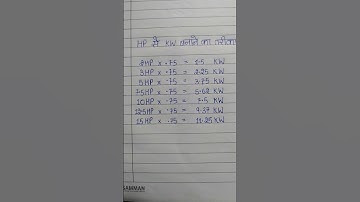 HP से KW बनाने का तरीका
2HP × .75 = 1.5 KW
3HP × .75 = 2.25 KW
5HP × .75 = 3.75 KW
7.5HP × .75 = 5.62 KW
10HP × .75 = 7.5 KW
12.5HP × .75 = 9.37 KW
15HP × .75 = 11.25 KW
SAMMAN